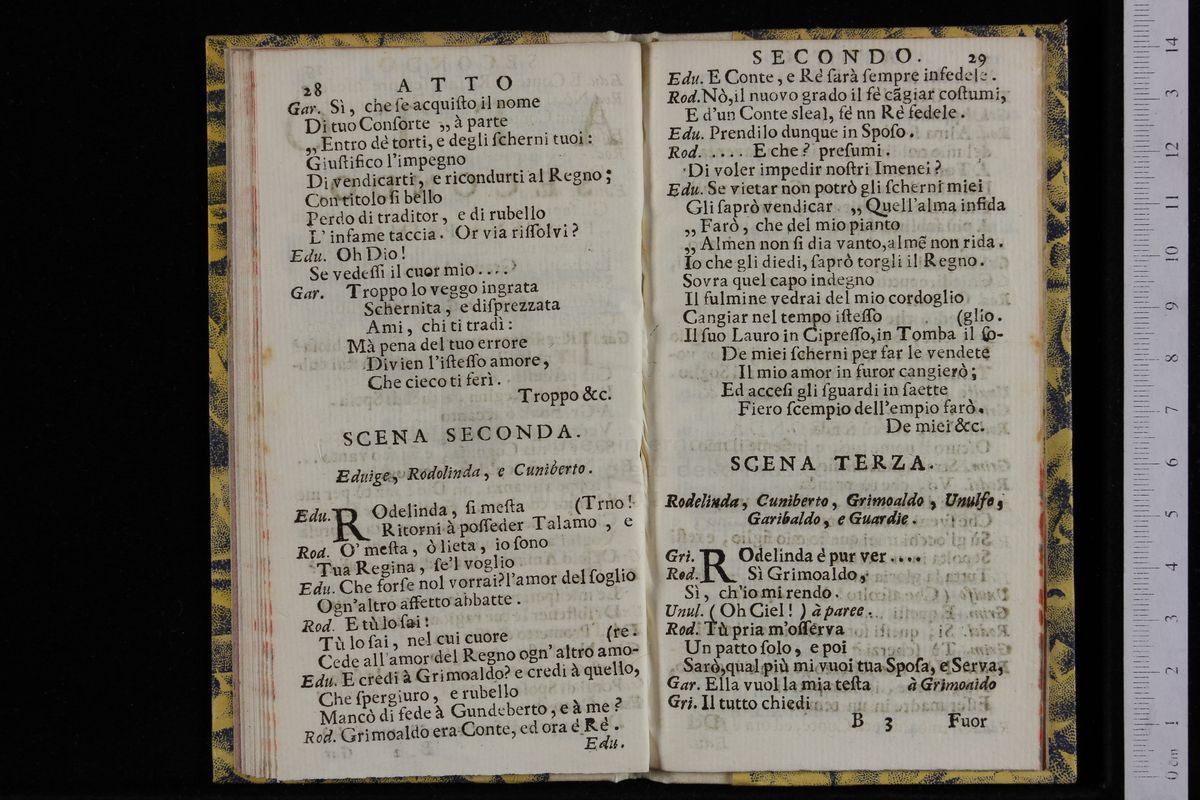 28 ATTO
Gar. Sì, che ſe acquiſto il nome
Di tuo Conſorte „ à parte
„ Entro dè torti, e degli ſcherni tuoi:
Giuſtifico l'impegno
Di vendicarti, e ricondurti al Regno;
Con titolo ſi bello
Perdo di traditor, e di rubello
L'infame taccia. Or via riſſolvi?
Edu. Oh Dio!
Se vedeſſi il cuor mio....
Gar. Troppo lo veggo ingrata
Schernita, e diſprezzata
Ami, chi ti tradì:
Mà pena del tuo errore
Divien l'iſteſſo amore,
Che cieco ti ferì.
Troppo &c.
SCENA SECONDA.
Eduige, Rodolinda, e Cuniberto.
Edu. ROdelinda, ſi meſta (Trno!
Ritorni à poſſeder Talamo, e
Rod. O' meſta, ò lieta, io ſono
Tua Regina, ſe'l voglio
Edu. Che forſe nol vorrai? l'amor del ſoglio
Ogn'altro affetto abbatte.
Rod. E tù lo ſai!
Tù lo ſai, nel cui cuore (re.
Cede all'amor del Regno ogn'altro amo-
Edu. E credi à Grimoaldo? e credi à quello,
Che ſpergiuro, e rubello
Mancò di fede à Gundeberto, e à me?
Rod. Grimoaldo era Conte, ed ora è Rè.
Edu.
SECONDO. 29
Edu. E Conte, e Rè ſarà ſempre infedele.
Rod. Nò, il nuovo grado il fè cãgiar coſtumi,
E d'un Conte sleal, fè nn Rè fedele.
Edu. Prendilo dunque in Spoſo.
Rod. .... E che? preſumi.
Di voler impedir noſtri Imenei?
Edu. Se vietar non potrò gli ſcherni miei
Gli ſaprò vendicar „ Quell'alma infida
„ Farò, che del mio pianto
„ Almen non ſi dia vanto, almẽ non rida.
Io che gli diedi, ſaprò torgli il Regno.
Sovra quel capo indegno
Il fulmine vedrai del mio cordoglio
Cangiar nel tempo iſteſſo (glio.
Il ſuo Lauro in Cipreſſo, in Tomba il ſo-
De miei ſcherni per far le vendete
Il mio amor in furor cangierò;
Ed acceſi gli ſguardi in ſaette
Fiero ſcempio dell'empio farò.
De miei &c.
SCENA TERZA.
Rodelinda, Cuniberto, Grimoaldo, Unulfo,
Garibaldo, e Guardie.
Gri. ROdelinda è pur ver....
Rod. Sì Grimoaldo,
Sì, ch'io mi rendo.
Unul. (Oh Ciel!) à paree.
Rod. Tù pria m'oſſerva
Un patto ſolo, e poi
Sarò, qual più mi vuoi tua Spoſa, e Serva,
Gar. Ella vuol la mia teſta à Grimoaldo
Gri. Il tutto chiedi
B 3 Fuor